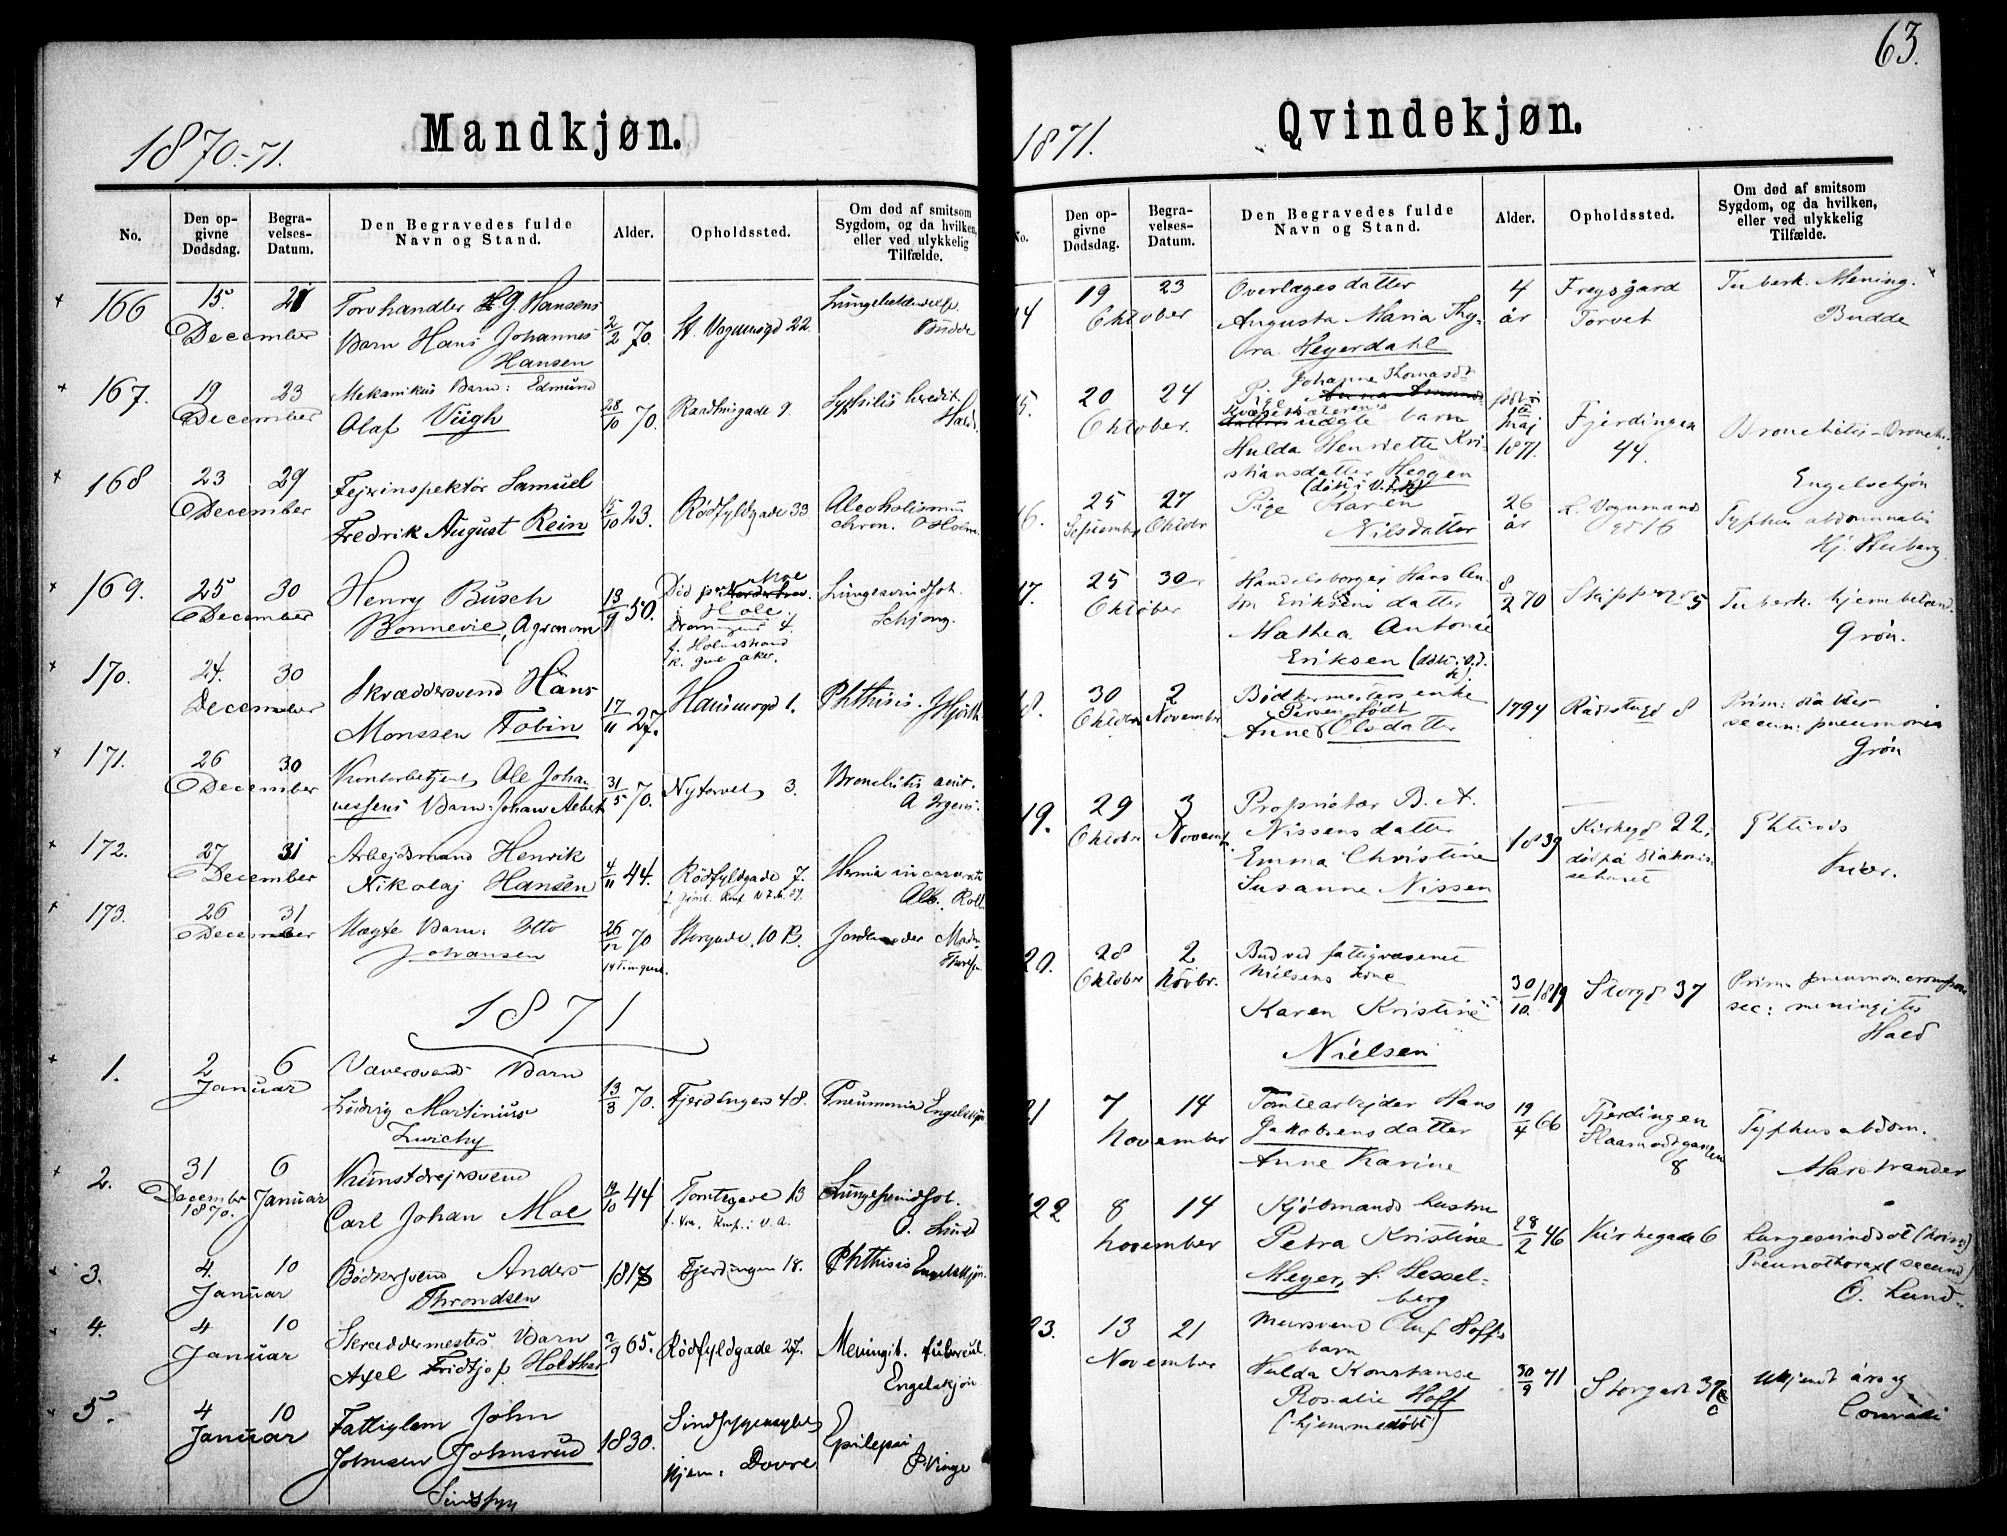 63.
1870.-71.
Mandkjøn.
No.
Den opgivne Dødsdag.
Begravelses-Datum.
Den Begravedes fulde Navn og Stand.
Alder.
Opholdssted.
Om død af smitsom Sygdom, og da hvilken, eller ved ulykkelig Tilfælde.
166 15 December 21
Torvhandler H. G. Hansens
Barn Hans Johannes
Hansen
2/2 70. St. Vognmsgd 22.
Budde
167. 19 December 23
Mekanikus Barn: Edmund
Olaf Viigh
28/10 70. Raadhusgade 9. Syphilis heredit.
Hald.
168 23 December 29
Fejrinspektør Samuel
Fredrik August Rein
15/10 23. Rødfyldgade 33 Alcoholismus
chron. O Holm.
169. 25 December 30
Henry Busch
Bonnevie, Agronom
13/9 50. Død paa
Hole
Dronnings 4
f. Holmestrand
Lungesvindsot.
Schjong.
170. 24. December 30
Skræddersvend Hans
Monssen Tobin
17/11 27. Hausmsgd 1. Phthisis. Hjorth
171. 26 December 30
Kontorbetjent Ole Johannessens Barn: Johan Albert
31/5 70. Nytorvet 3. Bronchitis acut.
172. 27 December 31
Arbejdsmand Henrik
Nikolaj Hansen
4/11 44. Rødfyldgade 7. Hernia incarcerata
Roll.
173. 26 December 31
Uægte Barn: Otto
Johansen
26/12 70 Storgade 10 B. Jordemoder Mad.
14 Timer gml.
1871
1. 2 Januar 6
Væversvends Barn
Ludvig Martinius
Zwichy
13/3 70. Fjerdingen 48. Pneumonia Engelskjøn
2. 31 December 1870. 6 Januar
Kunstdrejersvend
Carl Johan Moe
19/10 44 Tomtegade 13 Lungesvindsot.
O. Lund
3. 4. Januar 10
Bødkersvend Anders
Throndsen
1817 Fjerdingen 18. Phthisis Engelskjøn.
4. 4 Januar 10
Skræddermesters Barn
Axel Fridtjof Holther
2/9 65. Rødfyldgade 27. Meningit. tubercul.
Engelskjøn
5. 4 Januar 10
Fattiglem John
Johnsen Johnsrud
Sindssyg
1830. Sindssygeasylets
Hjem: Dovre
Epilepsi
Winge
1871.
Qvindekjøn.
No.
Den opgivne Dødsdag.
Begravelses-Datum.
Den Begravedes fulde Navn og Stand.
Alder.
Opholdssted.
Om død af smitsom Sygdom, og da hvilken, eller ved ulykkelig Tilfælde.
14 19 Oktober 23
Overlæges datter
Augusta Maria Thyra Heyerdahl
4 år Freysgard
Torvet
Tuberk. Mening.
Budde
15. 20 Oktober 24
P. Johanne Thomasdt
Pige
uægte barn
Hulda Henriette Kristiansdatter Heggen
(døbt i V. A. K)
født i maj 1871. Fjerdingen
44.
Bronchitis
Engelschjøn
16. 25 September 27 Oktobr
Pige Karen
Nilsdatter
26 år L. Vognmand
gd 16
Typhus abdominalis
Hj. Heiberg.
17. 25 Oktober 30
Handelsborger Hans Anton Eriksens datter
Mathea Antonie
Eriksen (døbt i V. A. K).
8/2 70 Skippergd 5 Tuberk. hjernebetænd.
Grøn.
18. 30 Oktobr 2 November
Bødkermesters enke
Persen født
Anne Olsdatter
1794 Rådstugd 8
secun: pneumonia
Grøn
19. 29 Oktobr 3 Novemb.
Proprietær B. A.
Nissens datter
Emma Christine
Susanne Nissen
1839 Kirkegd 22,
død på Diakonissehuset
Phtisis
Kiær.
20. 28 Oktober 2 Novbr.
Bud ved fattigvæsenet
Nielsens kone
Karen Kristine
Nielsen
30/10. 1819 Storgd 37 Prim: pneumon.
sec: meningitis
Hald
21 7 November 14
Tomtearbejder Hans
Jakobsens datter
Anne Karine
19/4 66 Fjerdingen
8
Typhus abdom.
Marstrander
22 8 November 14
Kjøbmands hustru
Petra Kristine
Meyer, f. Hesselberg
28/2 46 Kirkegade 6 Lungesvindsot (prim:)
Pneumothorax (secund)
O. Lund.
23. 13 November 21
Mursvend Oluf Hoffs
barn
Hulda Konstanse
Rosalie Hoff
(hjemmedøbt)
30/9 71 Storgade 37
c
Ukjendt årsag
Conradi